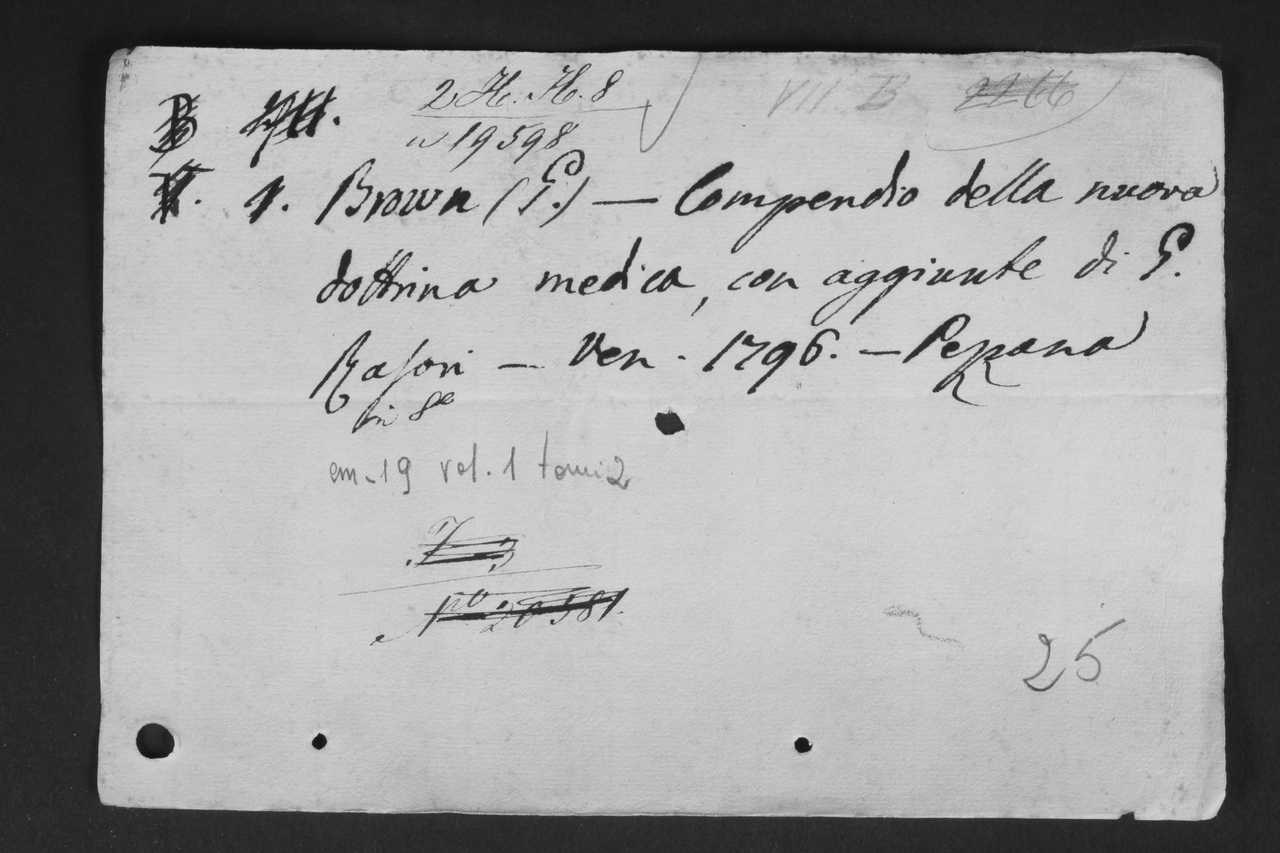 2 H. H. 8
VII. B
n 19598
1. Brown (G.) — Compendio della nuova
dottrina medica, con aggiunte di G.
Rasori — Ven. 1796. — Pezzana
in 8º
em. 19 vol. 1 tomi 2
Nº 20581.
25